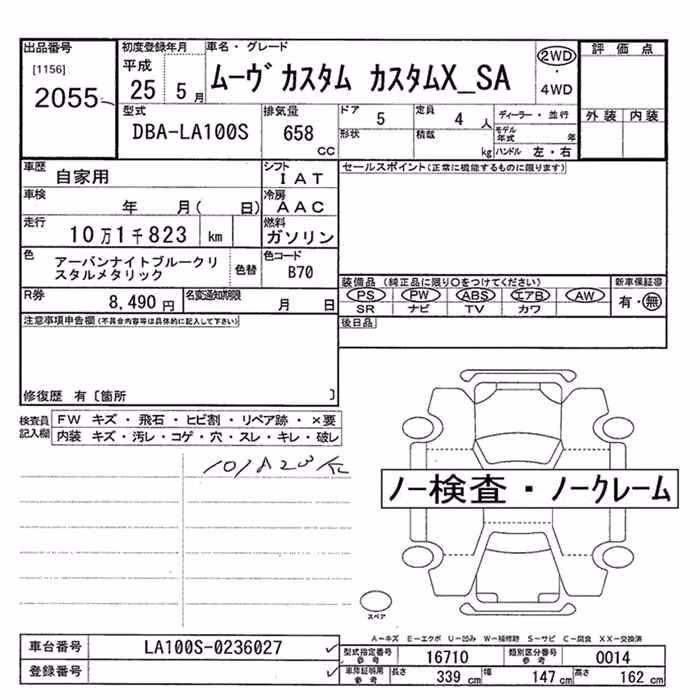 出品番号
[1156]
2055
初度登録年月
平成
25 5 月
車名・グレード
ムーヴ カスタム カスタムX_SA
2WD
・
4WD
評価点
外装 内装
型式
DBA-LA100S
排気量
658
CC
ドア
5
定員
4 人
形状
積載
kg
ディーラー・並行
モデル年式 年
ハンドル 左・右
車歴
自家用
シフト
IAT
車検
年 月( 日)
冷房
AAC
走行
10万1千823 km
燃料
ガソリン
色
アーバンナイトブルークリ
スタルメタリック
色替
色コード
B70
R券
8,490 円
名変通知期限
月 日
セールスポイント(正常に機能するものに限ります)
装備品 (純正品に限り○をつけてください)
PS PW ABS エアB AW
SR ナビ TV カワ
新車保証書
有・無
後日品
注意事項申告欄(不具合内容等は具体的に記入して下さい)
修復歴 有〔箇所 〕
検査員
記入欄
FW キズ・飛石・ヒビ割・リペア跡・×要
内装 キズ・汚レ・コゲ・穴・スレ・キレ・破レ
ノー検査・ノークレーム
スペア
A-キズ E-エクボ U-凹み W-補修跡 S-サビ C-腐食 XX-交換済
車台番号
LA100S-0236027
登録番号
型式指定番号
参考
16710
類別区分番号
参考
0014
車庫証明用
参考
長さ
339 cm
幅
147 cm
高さ
162 cm